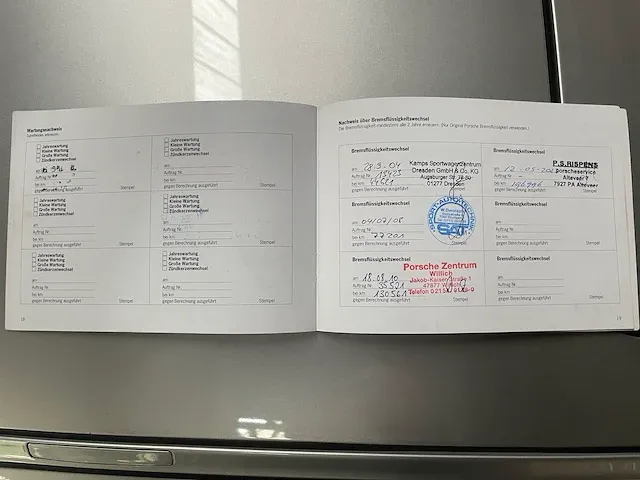 Wartungsnachweis
Jahreswartung
Kleine Wartung
Große Wartung
Zündkerzenwechsel
am
Auftrag Nr.
bei km
gegen Berechnung ausgeführt Stempel
Jahreswartung
Kleine Wartung
Große Wartung
Zündkerzenwechsel
am
Auftrag Nr.
bei km
gegen Berechnung ausgeführt Stempel
Jahreswartung
Kleine Wartung
Große Wartung
Zündkerzenwechsel
am
Auftrag Nr.
bei km
gegen Berechnung ausgeführt Stempel
Jahreswartung
Kleine Wartung
Große Wartung
Zündkerzenwechsel
am
Auftrag Nr.
bei km
gegen Berechnung ausgeführt Stempel
Jahreswartung
Kleine Wartung
Große Wartung
Zündkerzenwechsel
am
Auftrag Nr.
bei km
gegen Berechnung ausgeführt Stempel
Jahreswartung
Kleine Wartung
Große Wartung
Zündkerzenwechsel
am
Auftrag Nr.
bei km
gegen Berechnung ausgeführt Stempel
18
Nachweis über Bremsflüssigkeitswechsel
Die Bremsflüssigkeit mindestens alle 2 Jahre erneuern. (Nur Original Porsche Bremsflüssigkeit verwenden.)
Bremsflüssigkeitswechsel
Kamps Sportwagenzentrum
Dresden GmbH & Co. KG
01277 Dresden
am 28.3.04
Auftrag Nr.
bei km
gegen Berechnung ausgeführt
Bremsflüssigkeitswechsel
P.S.RISPENS
porscheservice
Alteveer
7927 PA Alteveer
am
Auftrag Nr. -
bei km
gegen Berechnung ausgeführt Stempel
Bremsflüssigkeitswechsel
am 04/07/08
Auftrag Nr.
bei km 77201
gegen Berechnung ausgeführt
Bremsflüssigkeitswechsel
am
Auftrag Nr.
bei km
gegen Berechnung ausgeführt Stempel
Bremsflüssigkeitswechsel
Porsche Zentrum
Willich
Jakob-Kaiser-Straße 1
47877 Willich
am 18.08.10
Auftrag Nr. 35521
bei km 130561
gegen Berechnung ausgeführt Stempel
Bremsflüssigkeitswechsel
am
Auftrag Nr.
bei km
gegen Berechnung ausgeführt Stempel
19